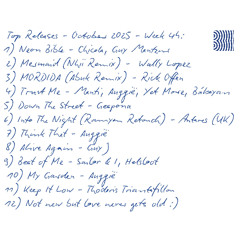 Top Releases - October 2025 - Week 44:
1) Neon Bible - Chicola, Guy Mantzur
2) Mesmaid (Nhji Remix) - Wally Lopez
3) MORDIDA (Abuk Remix) - Rick Offen
4) Trust Me - Manti, Auggië, Yet More,
5) Down The Street - Geeponia
6) Into The Night (Ramiyen Retouch) - Antares (UK)
7) Think That - Auggië
8) Alive Again - Guy J
9) Beat of Me - Sailor & I, Hotsloot
10) My Garden - Auggië
11) Keep It Low - Thodoris Triantafillou
12) Not new but love never gets old :)